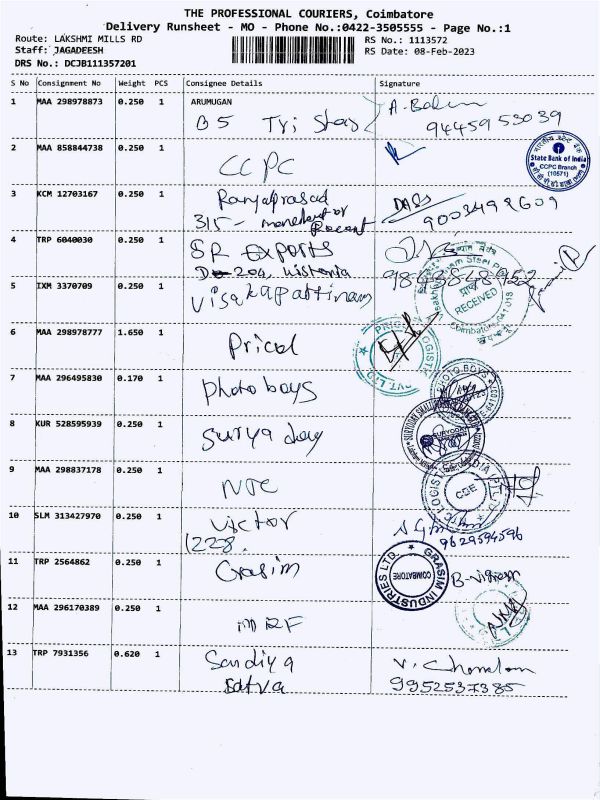 THE PROFESSIONAL COURIERS, Coimbatore
Delivery Runsheet - MO - Phone No.:0422-3505555 - Page No.:1
Route: LAKSHMI MILLS RD
Staff: JAGADEESH
DRS No.: DCJB111357201
RS No.: 1113572
RS Date: 08-Feb-2023
S No Consignment No Weight PCS Consignee Details Signature
1 MAA 298978873 0.250 1 ARUMUGAN
B5 Tri Star
94459 53039
2 MAA 858844738 0.250 1
CCPC
State Bank of India
CCPC Branch
(10571)
3 KCM 12703167 0.250 1 Ramyaprasad
315-
9003492609
4 TRP 6040030 0.250 1 SR Exports
5 IXM 3370709 0.250 1 Visakapattinam
RECEIVED
6 MAA 298978777 1.650 1 Pricol
7 MAA 296495830 0.170 1 photo boys
PHOTO BOYS
8 KUR 528595939 0.250 1 Surya
9 MAA 298837178 0.250 1
CBE
10 SLM 313427970 0.250 1 Victor
1228.
9629594596
11 TRP 2564862 0.250 1 Grasim
GRASIM INDUSTRIES LTD.
COIMBATORE
12 MAA 296170389 0.250 1 MRF
13 TRP 7931356 0.620 1 Sandiya
Satva
9952537385